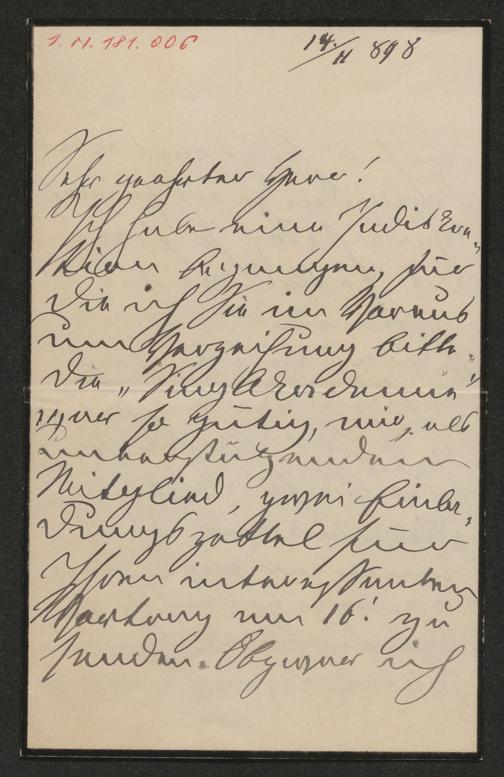 I. N. 181.006
14./II 898
Sehr geehrter Herr!
Ich habe eine Indiskre-
tion begangen, für
die ich Sie im Voraus
um Verzeihung bitte.
Die „Sing Akademie"
war so gütig, mir, als
unterstützendem
Mitglied, zwei Einla-
dungszettel für
Ihren interessanten
Vortrag am 16! zu
senden. Obzwar ich